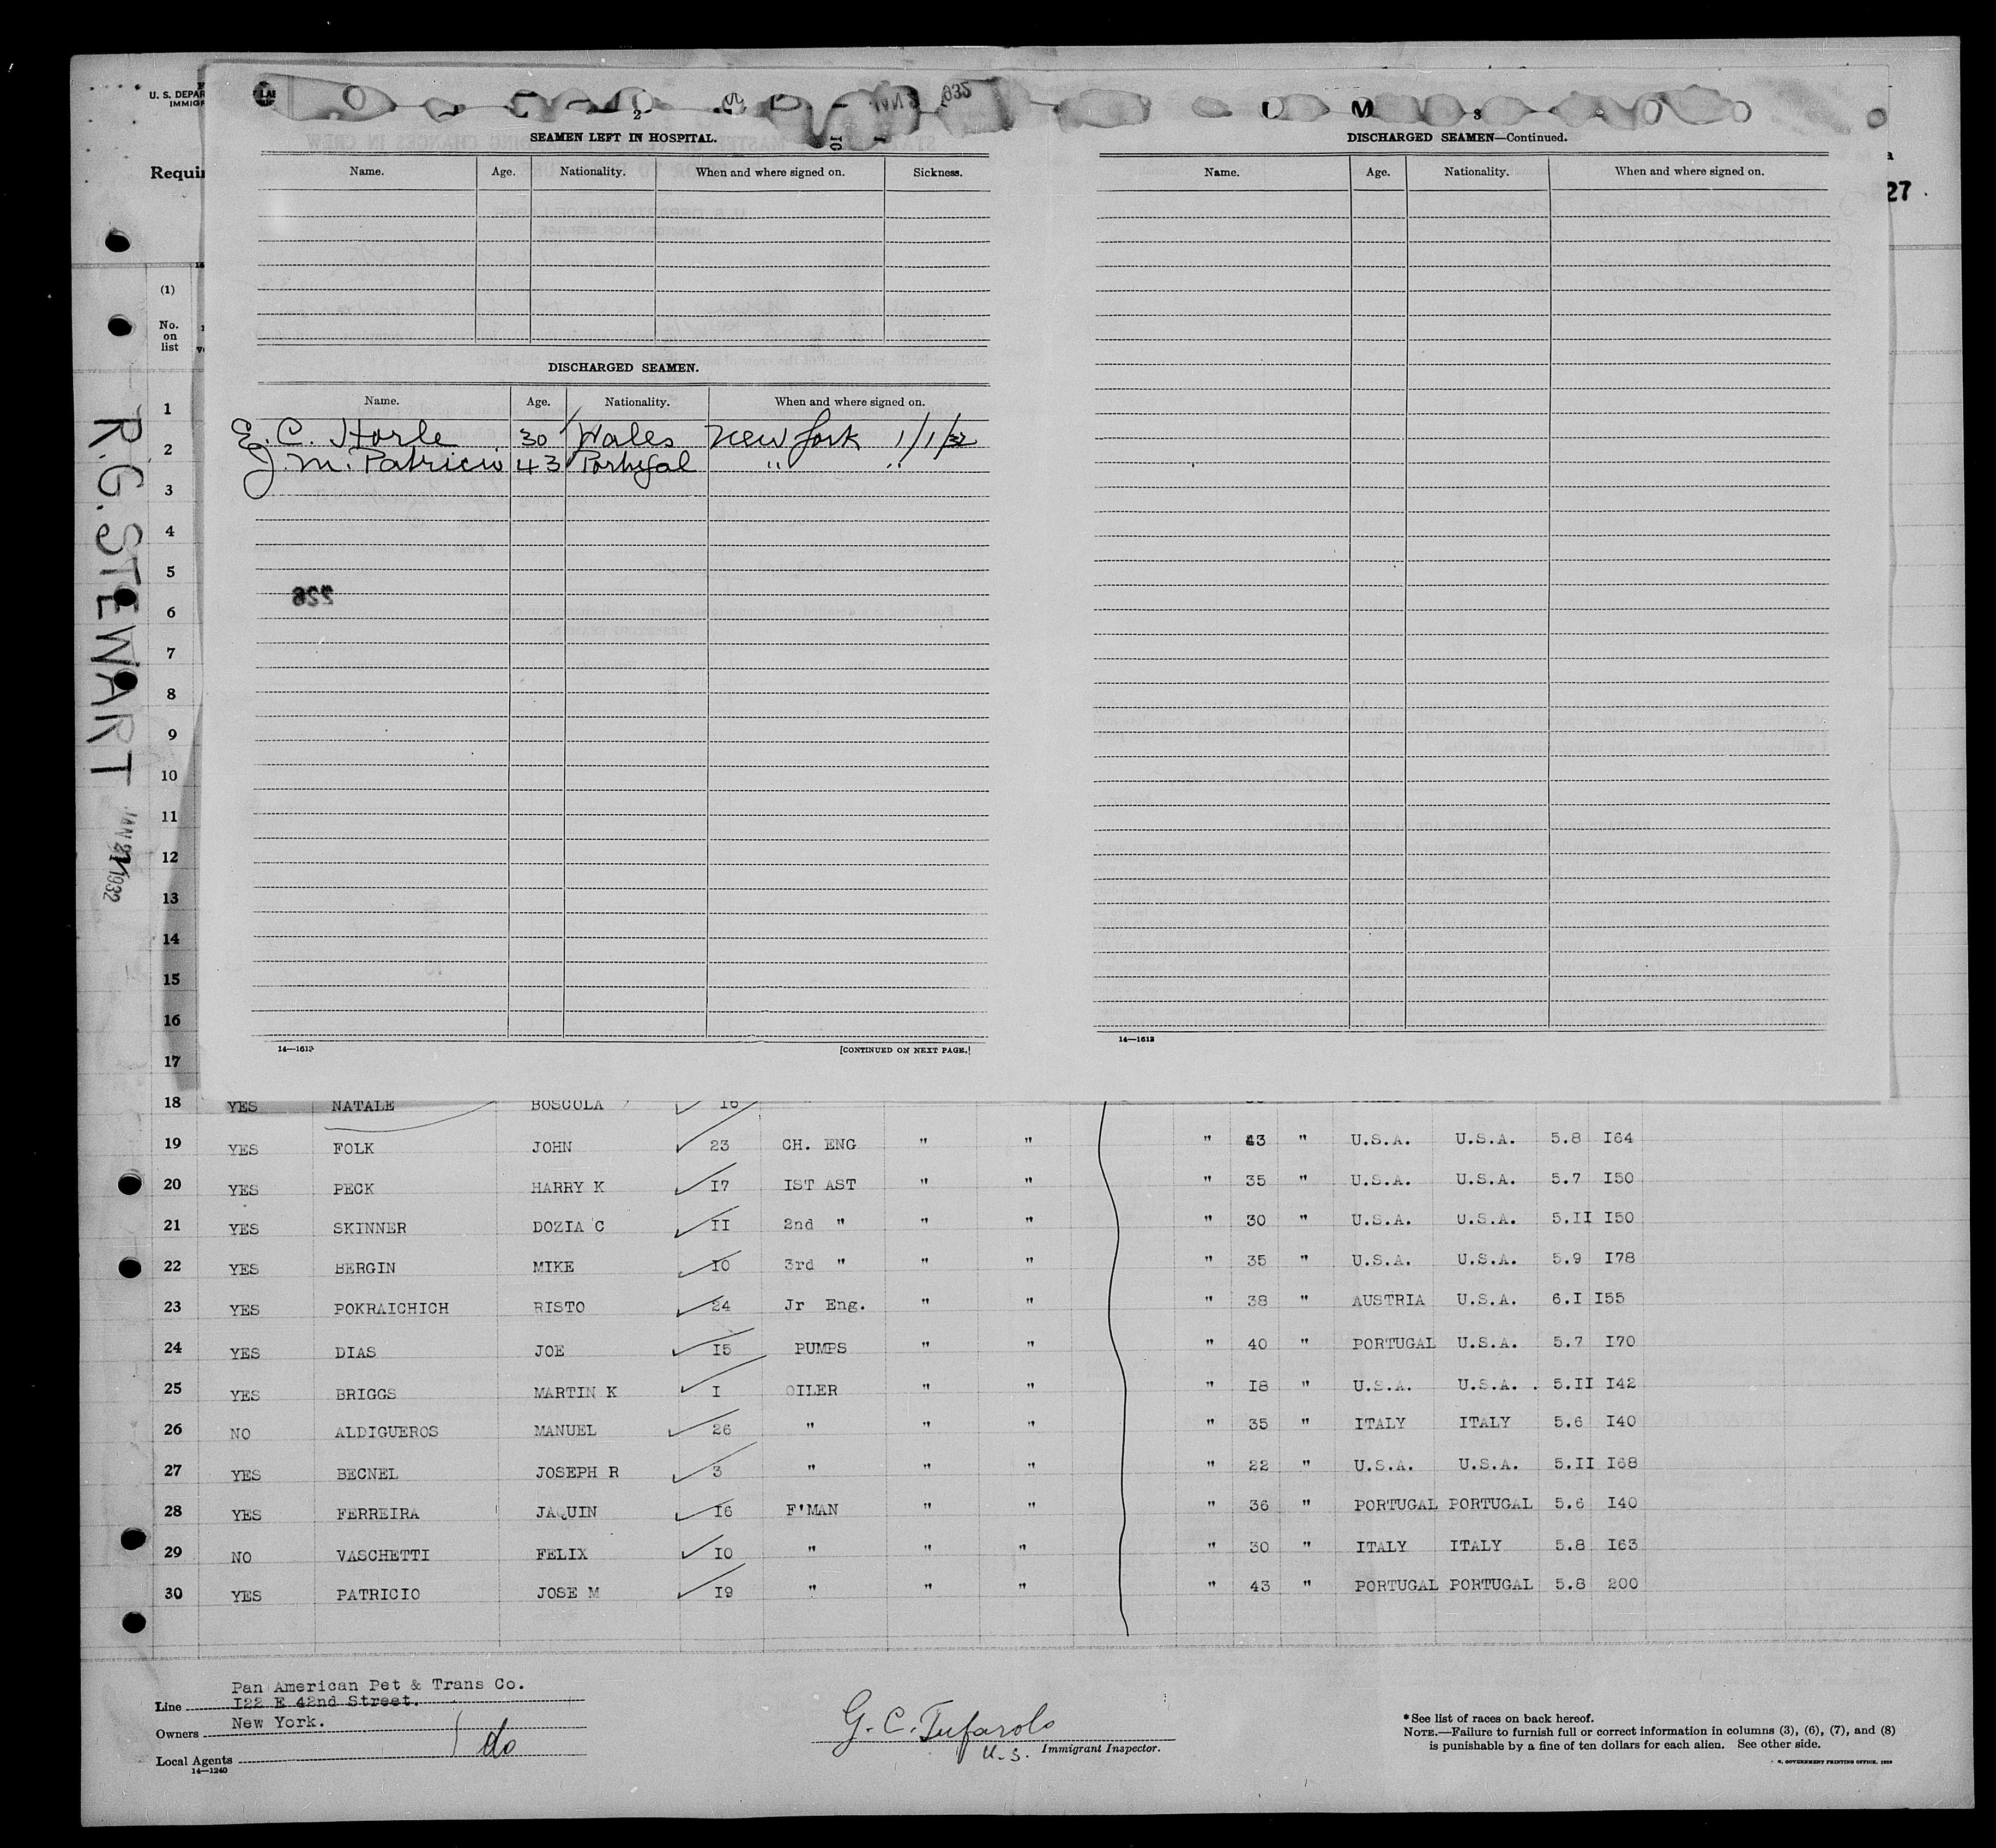 U. S. DEPAR
IMMIGR
Requir
27
(1)
No.
on
list
R.G. STEWART
1932
2
SEAMEN LEFT IN HOSPITAL.
Name. Age. Nationality. When and where signed on. Sickness.
DISCHARGED SEAMEN.
Name. Age. Nationality. When and where signed on.
E. C. Horle 30 Wales New York 1/1/32
J. M. Patricio 43 Portugal " "
226
14—1613
[CONTINUED ON NEXT PAGE.]
3
DISCHARGED SEAMEN—Continued.
Name. Age. Nationality. When and where signed on.
14—1613
1
2
3
4
5
6
7
8
9
10
11
12
13
14
15
16
17
18 YES NATALE BOSCOLA 16
19 YES FOLK JOHN 23 CH. ENG " " " 43 " U.S.A. U.S.A. 5.8 I64
20 YES PECK HARRY K I7 IST AST " " " 35 " U.S.A. U.S.A. 5.7 I50
21 YES SKINNER DOZIA C II 2nd " " " " 30 " U.S.A. U.S.A. 5.II I50
22 YES BERGIN MIKE IO 3rd " " " " 35 " U.S.A. U.S.A. 5.9 I78
23 YES POKRAICHICH RISTO 24 Jr Eng. " " " 38 " AUSTRIA U.S.A. 6.I I55
24 YES DIAS JOE I5 PUMPS " " " 40 " PORTUGAL U.S.A. 5.7 I70
25 YES BRIGGS MARTIN K I OILER " " " I8 " U.S.A. U.S.A. 5.II I42
26 NO ALDIGUEROS MANUEL 26 " " " " 35 " ITALY ITALY 5.6 I40
27 YES BECNEL JOSEPH R 3 " " " " 22 " U.S.A. U.S.A. 5.II I68
28 YES FERREIRA JAQUIN I6 F'MAN " " " 36 " PORTUGAL PORTUGAL 5.6 I40
29 NO VASCHETTI FELIX IO " " " " 30 " ITALY ITALY 5.8 I63
30 YES PATRICIO JOSE M I9 " " " " 43 " PORTUGAL PORTUGAL 5.8 200
Line Pan American Pet & Trans Co.
I22 E 42nd Street.
Owners New York.
Local Agents do
14—1240
G. C. Tufarolo
U.S. Immigrant Inspector.
*See list of races on back hereof.
NOTE.—Failure to furnish full or correct information in columns (3), (6), (7), and (8)
is punishable by a fine of ten dollars for each alien. See other side.
GOVERNMENT PRINTING OFFICE